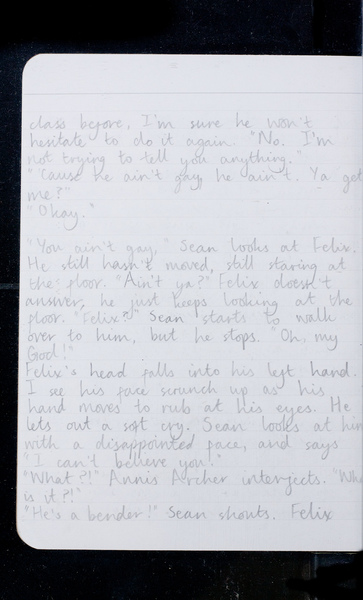 class before, I'm sure he won't
hesitate to do it again. "No. I'm
not trying to tell you anything."
"'Cause he ain't gay, he ain't. Ya get
me?"
"Okay."
"You ain't gay," Sean looks at Felix.
He still hasn't moved, still staring at
the floor. "Ain't ya?" Felix doesn't
answer, he just keeps looking at the
floor. "Felix?" Sean starts to walk
over to him, but he stops. "Oh, my
God!"
Felix's head falls into his left hand.
I see his face scrunch up as his
hand moves to rub at his eyes. He
lets out a soft cry. Sean looks at him
with a disappointed face, and says
"I can't believe you!"
"What?!" Annis Archer interjects. "Wh
is it?!"
"He's a bender!" Sean shouts. Felix